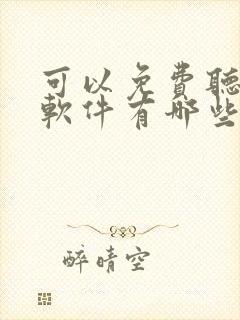 可以免費聽
軟件有哪些
醉晴空